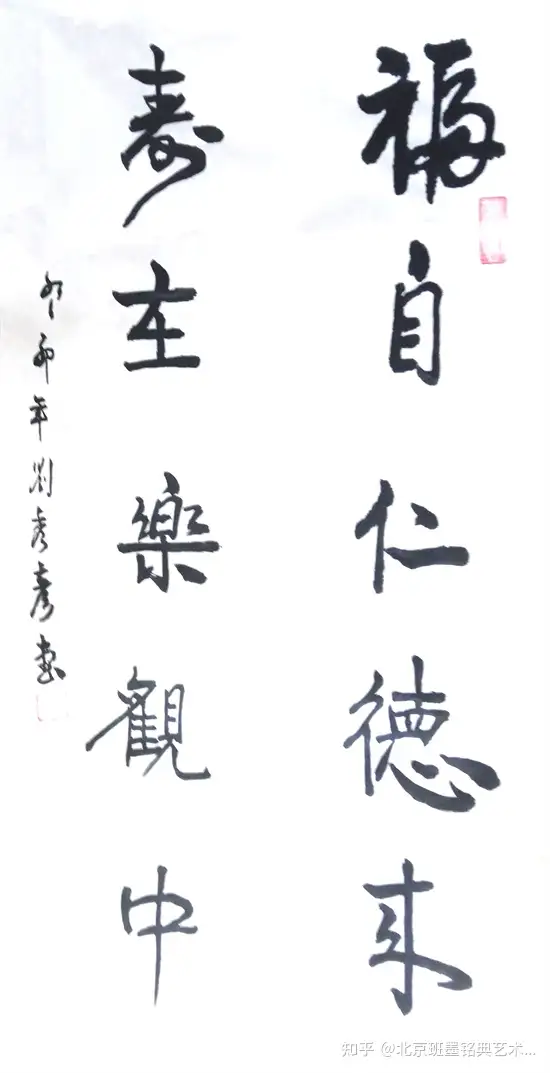 福自仁德来
寿在樂観中
癸卯年劉秀彦書
知乎 @北京班墨铭典艺术...